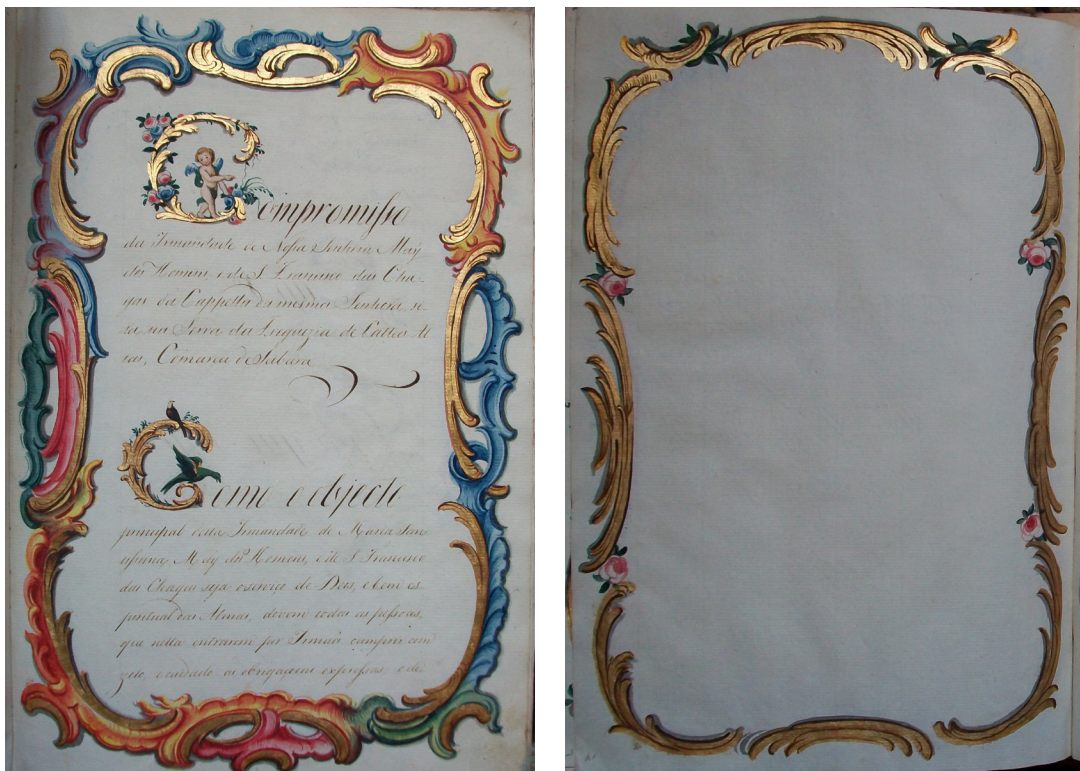 Compromisso
da Irmandade de Nossa Senhora Maÿ
dos Homens e de S. Francisco das Cha-
gas da Cappella da mesma Senhora si-
ta na Serra da Freguezia de Cattas Al-
tas, Comarca de Sabará
Como o objecto
principal desta Irmandade de Maria San-
tissima Maÿ dos Homens, e de S. Francisco
das Chagas seja o serviço de Deos, e bem es-
piritual das Almas, devem todas as pessoas,
que nella entrarem por Irmãos cumprir com
zelo, e cuidado as obrigaçoens expressas, e de